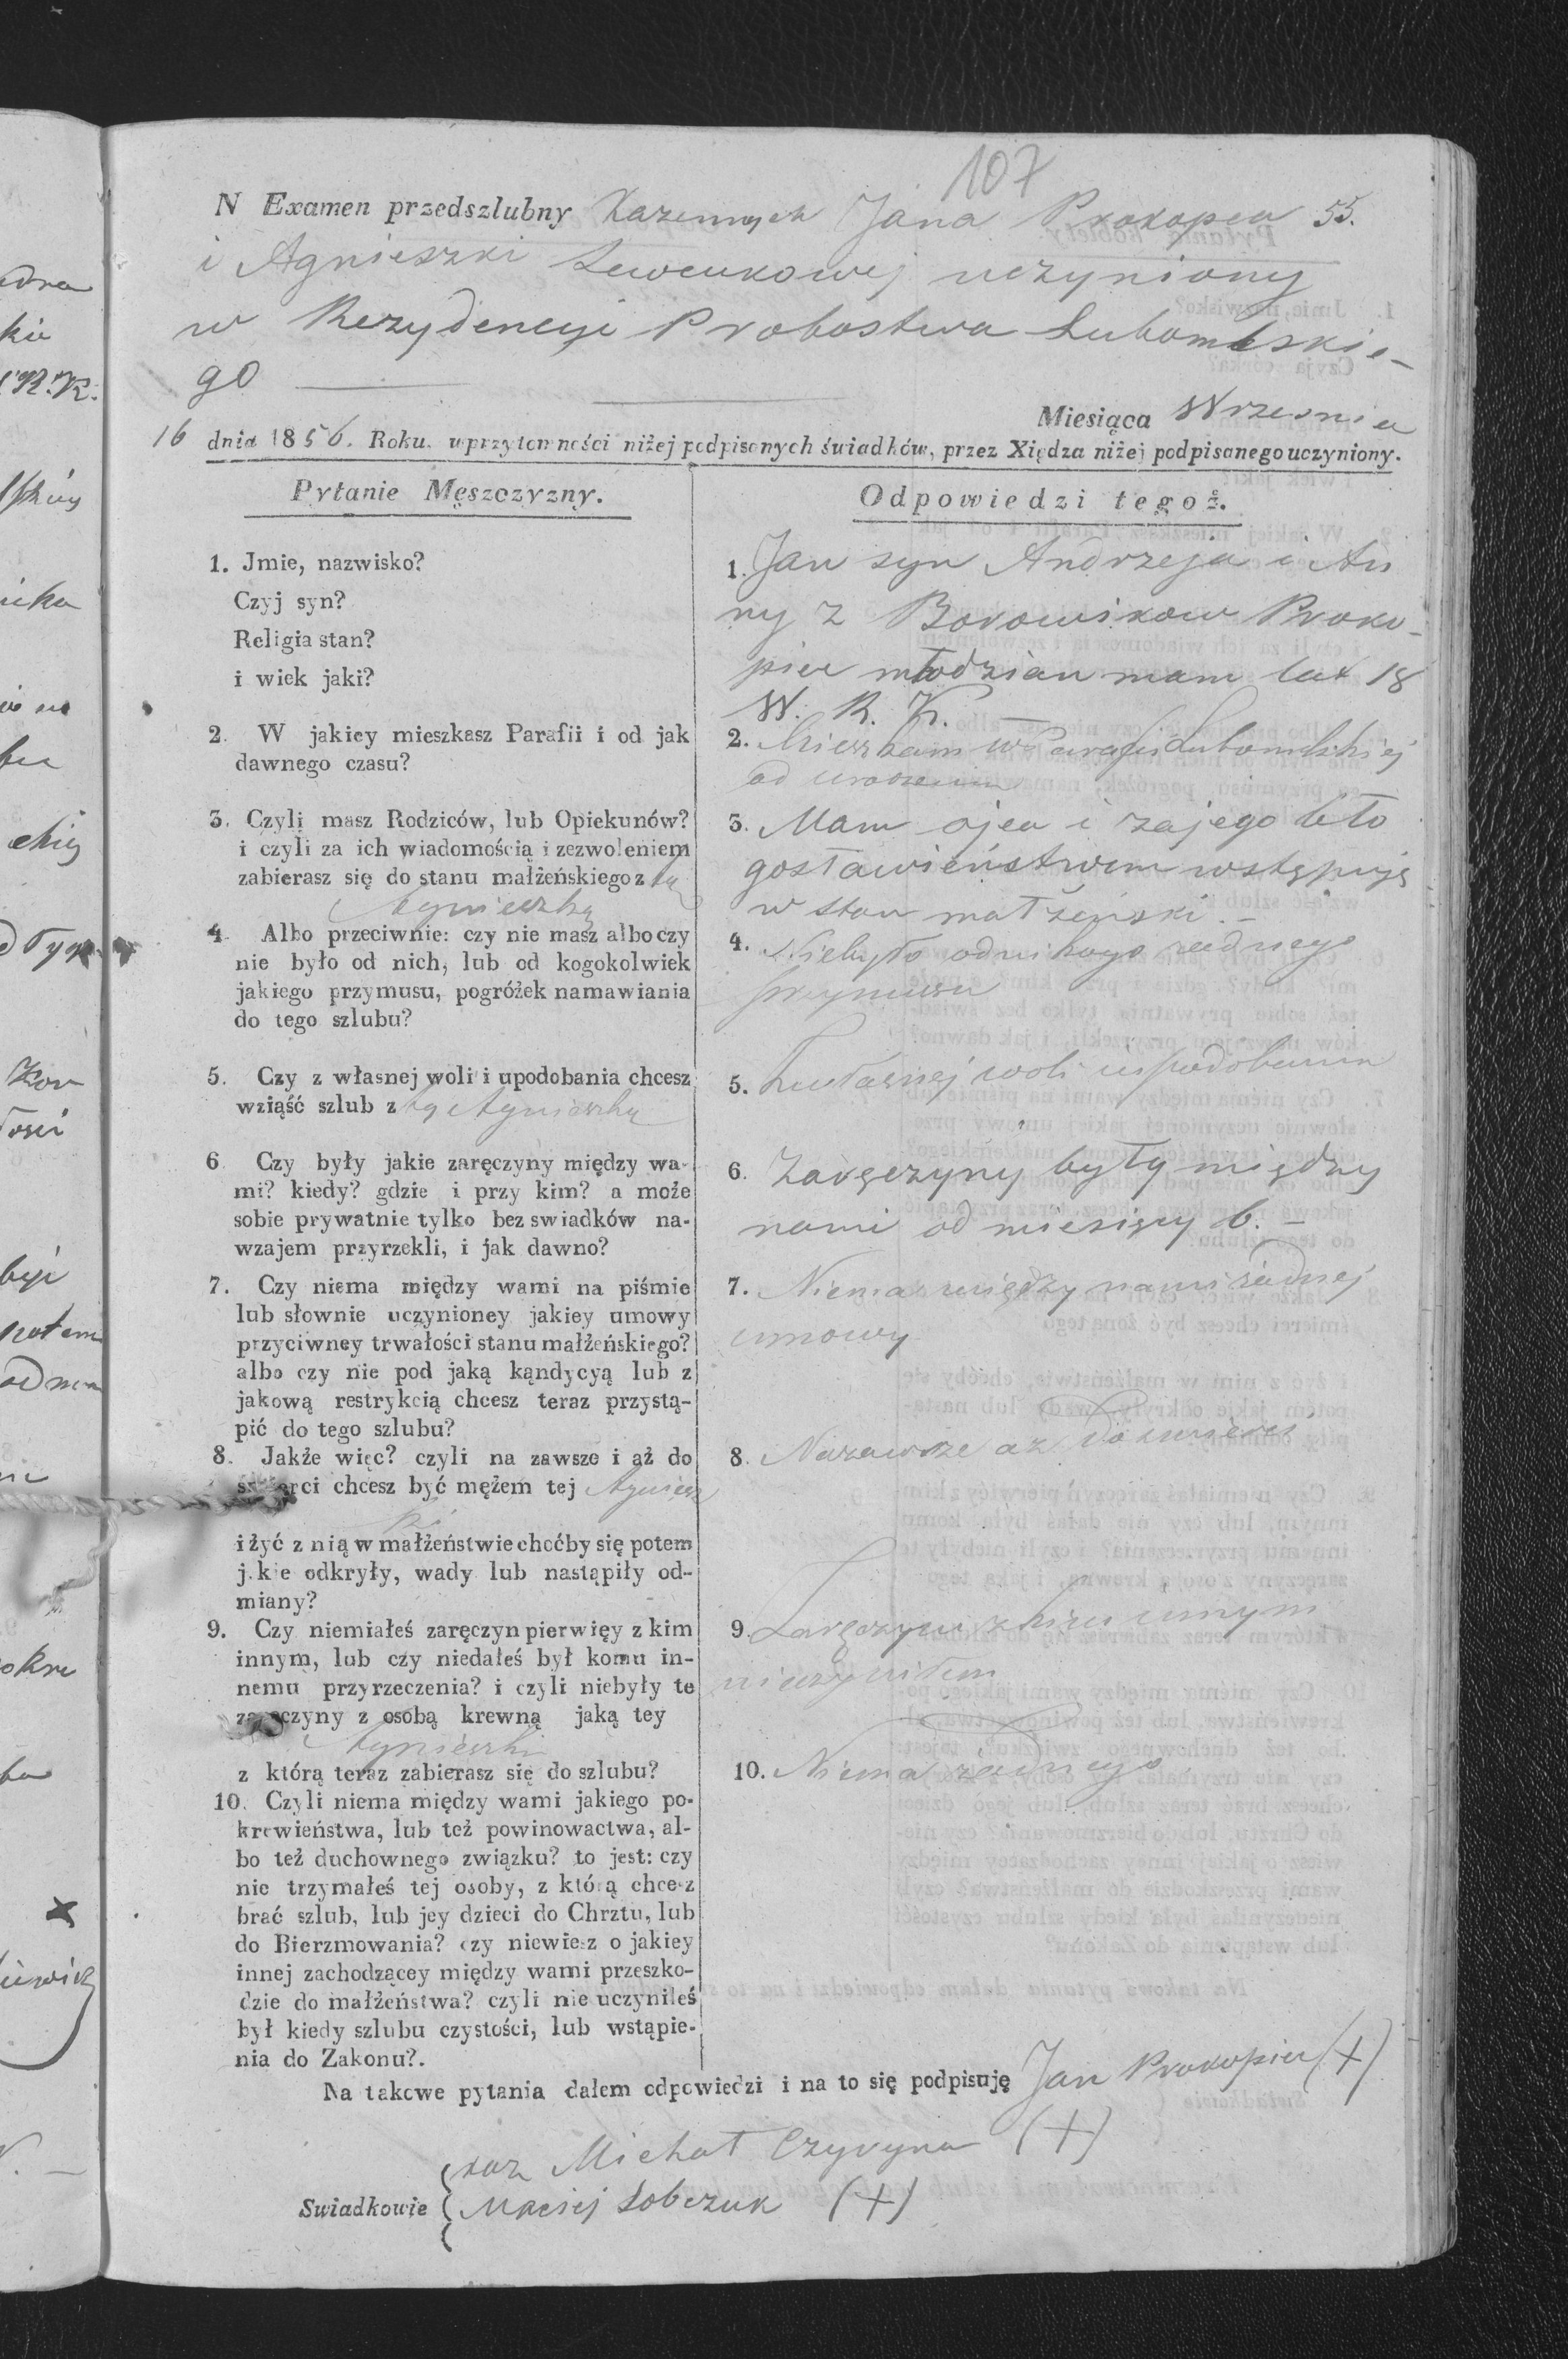 107
N Examen przedszlubny Kazennych Jana Prokopea 55.
i Agnieszki Lewczukowej uczyniony
w Rezydencyi Probostwa Lubomlskie-
go
Miesiąca Wrzesnia
16 dnia 1856. Roku. w przytomności niżej podpisanych świadków, przez Xiędza niżej podpisanego uczyniony.
Pytanie Męszczyzny.
1. Jmie, nazwisko?
Czyj syn?
Religia stan?
i wiek jaki?
2. W jakiey mieszkasz Parafii i od jak
dawnego czasu?
3. Czyli masz Rodziców, lub Opiekunów?
i czyli za ich wiadomością i zezwoleniem
zabierasz się do stanu małżeńskiego z tą
Agnieszką
4. Albo przeciwnie: czy nie masz albo czy
nie było od nich, lub od kogokolwiek
jakiego przymusu, pogróżek namawiania
do tego szlubu?
5. Czy z własnej woli i upodobania chcesz
wziąść szlub z tą Agnieszką
6 Czy były jakie zaręczyny między wa-
mi? kiedy? gdzie i przy kim? a może
sobie prywatnie tylko bez swiadków na-
wzajem przyrzekli, i jak dawno?
7. Czy niema między wami na piśmie
lub słownie uczynioney jakiey umowy
przyciwney trwałości stanu małżeńskiego?
albo czy nie pod jaką kąndycyą lub z
jakową restrykcią chcesz teraz przystą-
pić do tego szlubu?
8. Jakże więc? czyli na zawsze i aż do
śmierci chcesz być mężem tej Agniesz
ki
i żyć z nią w małżeństwie choćby się potem
jakie odkryły, wady lub nastąpiły od-
miany?
9. Czy niemiałeś zaręczyn pierwięy z kim
innym, lub czy niedałeś był komu in-
nemu przyrzeczenia? i czyli niebyły te
zaręczyny z osobą krewną jaką tey
Agnieszki
z którą teraz zabierasz się do szlubu?
10. Czyli niema między wami jakiego po-
krewieństwa, lub też powinowactwa, al-
bo też duchownego związku? to jest: czy
nie trzymałeś tej osoby, z którą chcesz
brać szlub, lub jey dzieci do Chrztu, lub
do Bierzmowania? czy niewiesz o jakiey
innej zachodzącey między wami przeszko-
dzie do małżeństwa? czyli nie uczyniłeś
był kiedy szlubu czystości, lub wstąpie-
nia do Zakonu?.
Odpowiedzi tegoż.
1. Jan syn Andrzeja i An
ny z Borowikow Proko-
piec młodzian mam lat 18
W. R. K.
2. Mieszkam w Parafii Lubomlskiej
od urodzenia
3. Mam ojca i za jego bło
gosławieństwem wstępuję
w stan małżeński.-
4. Niebyło od nikogo żadnego
przymusu
5. Z własnej woli i upodobania
6. Zaręczyny były między
nami od miesięcy 6. -
7. Niema między nami żadnej
umowy
8. Nazawsze aż do śmierci
9. Zaręczyn z kim innym
nieczyniłem
10. Niema żadnego
Na takowe pytania dałem odpowiedzi i na to się podpisuję Jan Prokopiec (+)
Swiadkowie (kaz Michał Czyryna (+)
Maciej Sobczuk (+)